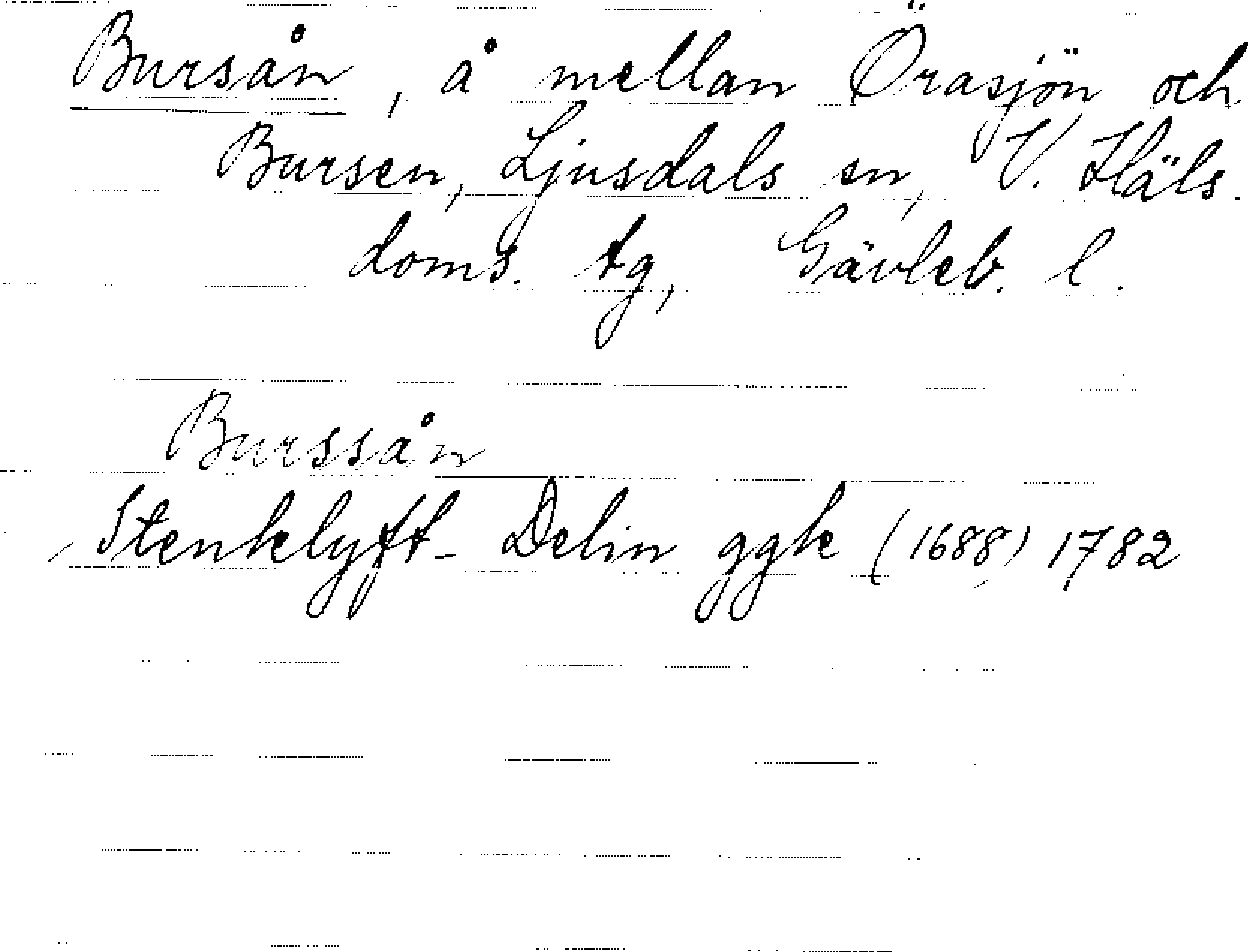 Bursån, å mellan Örasjön och
Bursen, Ljusdals sn, V. Häls.
doms. tg, Gävleb. l.
Burssån
Stenklyft- Delin ggk (1688) 1782